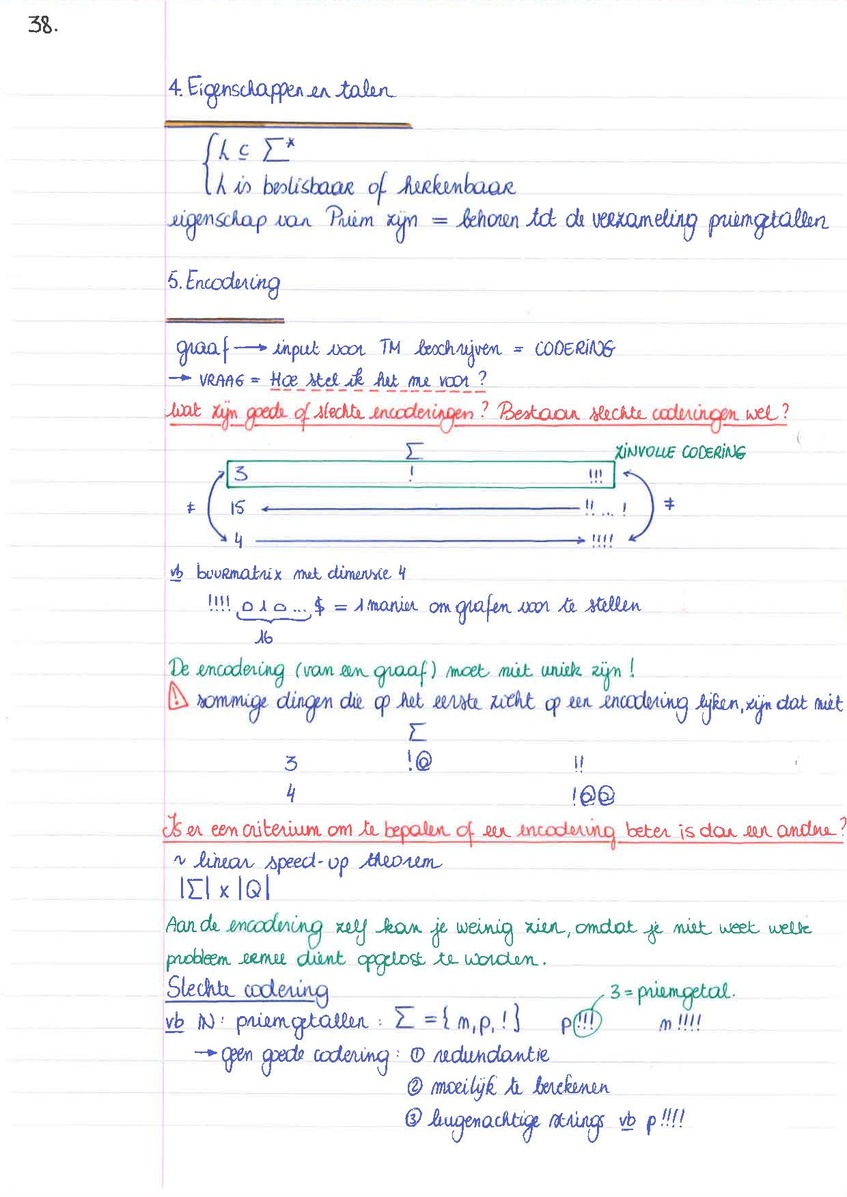 38.
4. Eigenschappen en talen
{ L ⊆ Σ*
L is beslisbaar of herkenbaar
eigenschap van Priem zijn = behoren tot de verzameling priemgetallen
5. Encodering
graaf → input voor TM beschrijven = CODERING
→ VRAAG = Hoe stel ik het me voor ?
Wat zijn goede of slechte encoderingen ? Bestaan slechte coderingen wel ?
Σ ZINVOLLE CODERING
3 ! !!!
≠ 15 ← !! ... ! ≠
4 → !!!!
vb buurmatrix met dimensie 4
!!!! 0 1 0 ... $ = 1 manier om grafen voor te stellen
16
De encodering (van een graaf) moet niet uniek zijn !
⚠ sommige dingen die op het eerste zicht op een encodering lijken, zijn dat niet
Σ
3 !@ !!
4 !@@
Is er een criterium om te bepalen of een encodering beter is dan een andre ?
~ linear speed-up theorem
|Σ| x |Q|
Aan de encodering zelf kan je weinig zien, omdat je niet weet welk
probleem ermee dient opgelost te worden.
Slechte codering 3 = priemgetal.
vb ℕ : priemgetallen : Σ = { m, p, ! } p!!! m!!!!
→ geen goede codering : ① redundantie
② moeilijk te berekenen
③ leugenachtige strings vb p!!!!